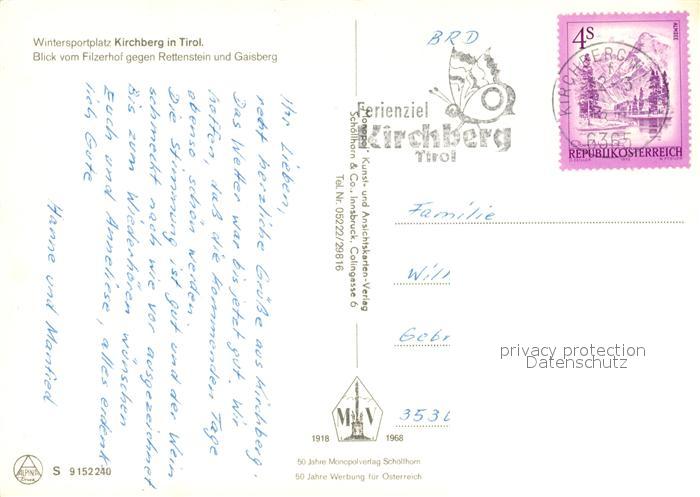 Wintersportplatz Kirchberg in Tirol.
Blick vom Filzerhof gegen Rettenstein und Gaisberg
Ihr Lieben,
recht herzliche Grüße aus Kirchberg.
Das Wetter war bis jetzt gut. Wir
hoffen, daß die kommenden Tage
ebenso schön werden.
Die Stimmung ist gut und der Wein
schmeckt nach wie vor ausgezeichnet
Bis zum Wiederhören wünschen
Euch und Anneliese, alles erdenk
lich Gute
Hanne und Manfred
ALPINA
S 9152240
Monopol Kunst- und Ansichtskarten-Verlag
Schöllhorn & Co., Innsbruck, Colingasse 6
Tel. Nr. 05222/29816
M V
1918 1968
50 Jahre Monopolverlag Schöllhorn
50 Jahre Werbung für Österreich
BRD
Ferienziel
Kirchberg
Tirol
4S
ALMSEE
KIRCHBERG
6365
REPUBLIK ÖSTERREICH
Familie
Will
Gebr
353
privacy protection
Datenschutz